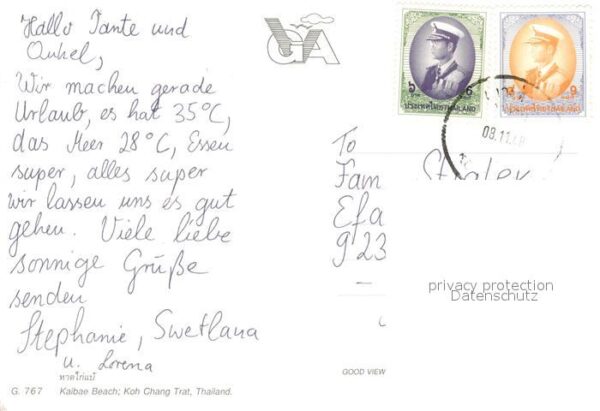 Hallo Tante und
Onkel,
Wir machen gerade
Urlaub, es hat 35°C,
das Meer 28°C, Essen
super, alles super
wir lassen uns es gut
gehen. Viele liebe
sonnige Grüße
senden
Stephanie, Swetlana
u. Lorena
หาดไก่แบ้
G. 767 Kaibae Beach; Koh Chang Trat, Thailand.
VGA
6 6
ประเทศไทย THAILAND
9 9
ประเทศไทย THAILAND
09.11
To
Fam
Efa
923
privacy protection
Datenschutz
GOOD VIEW